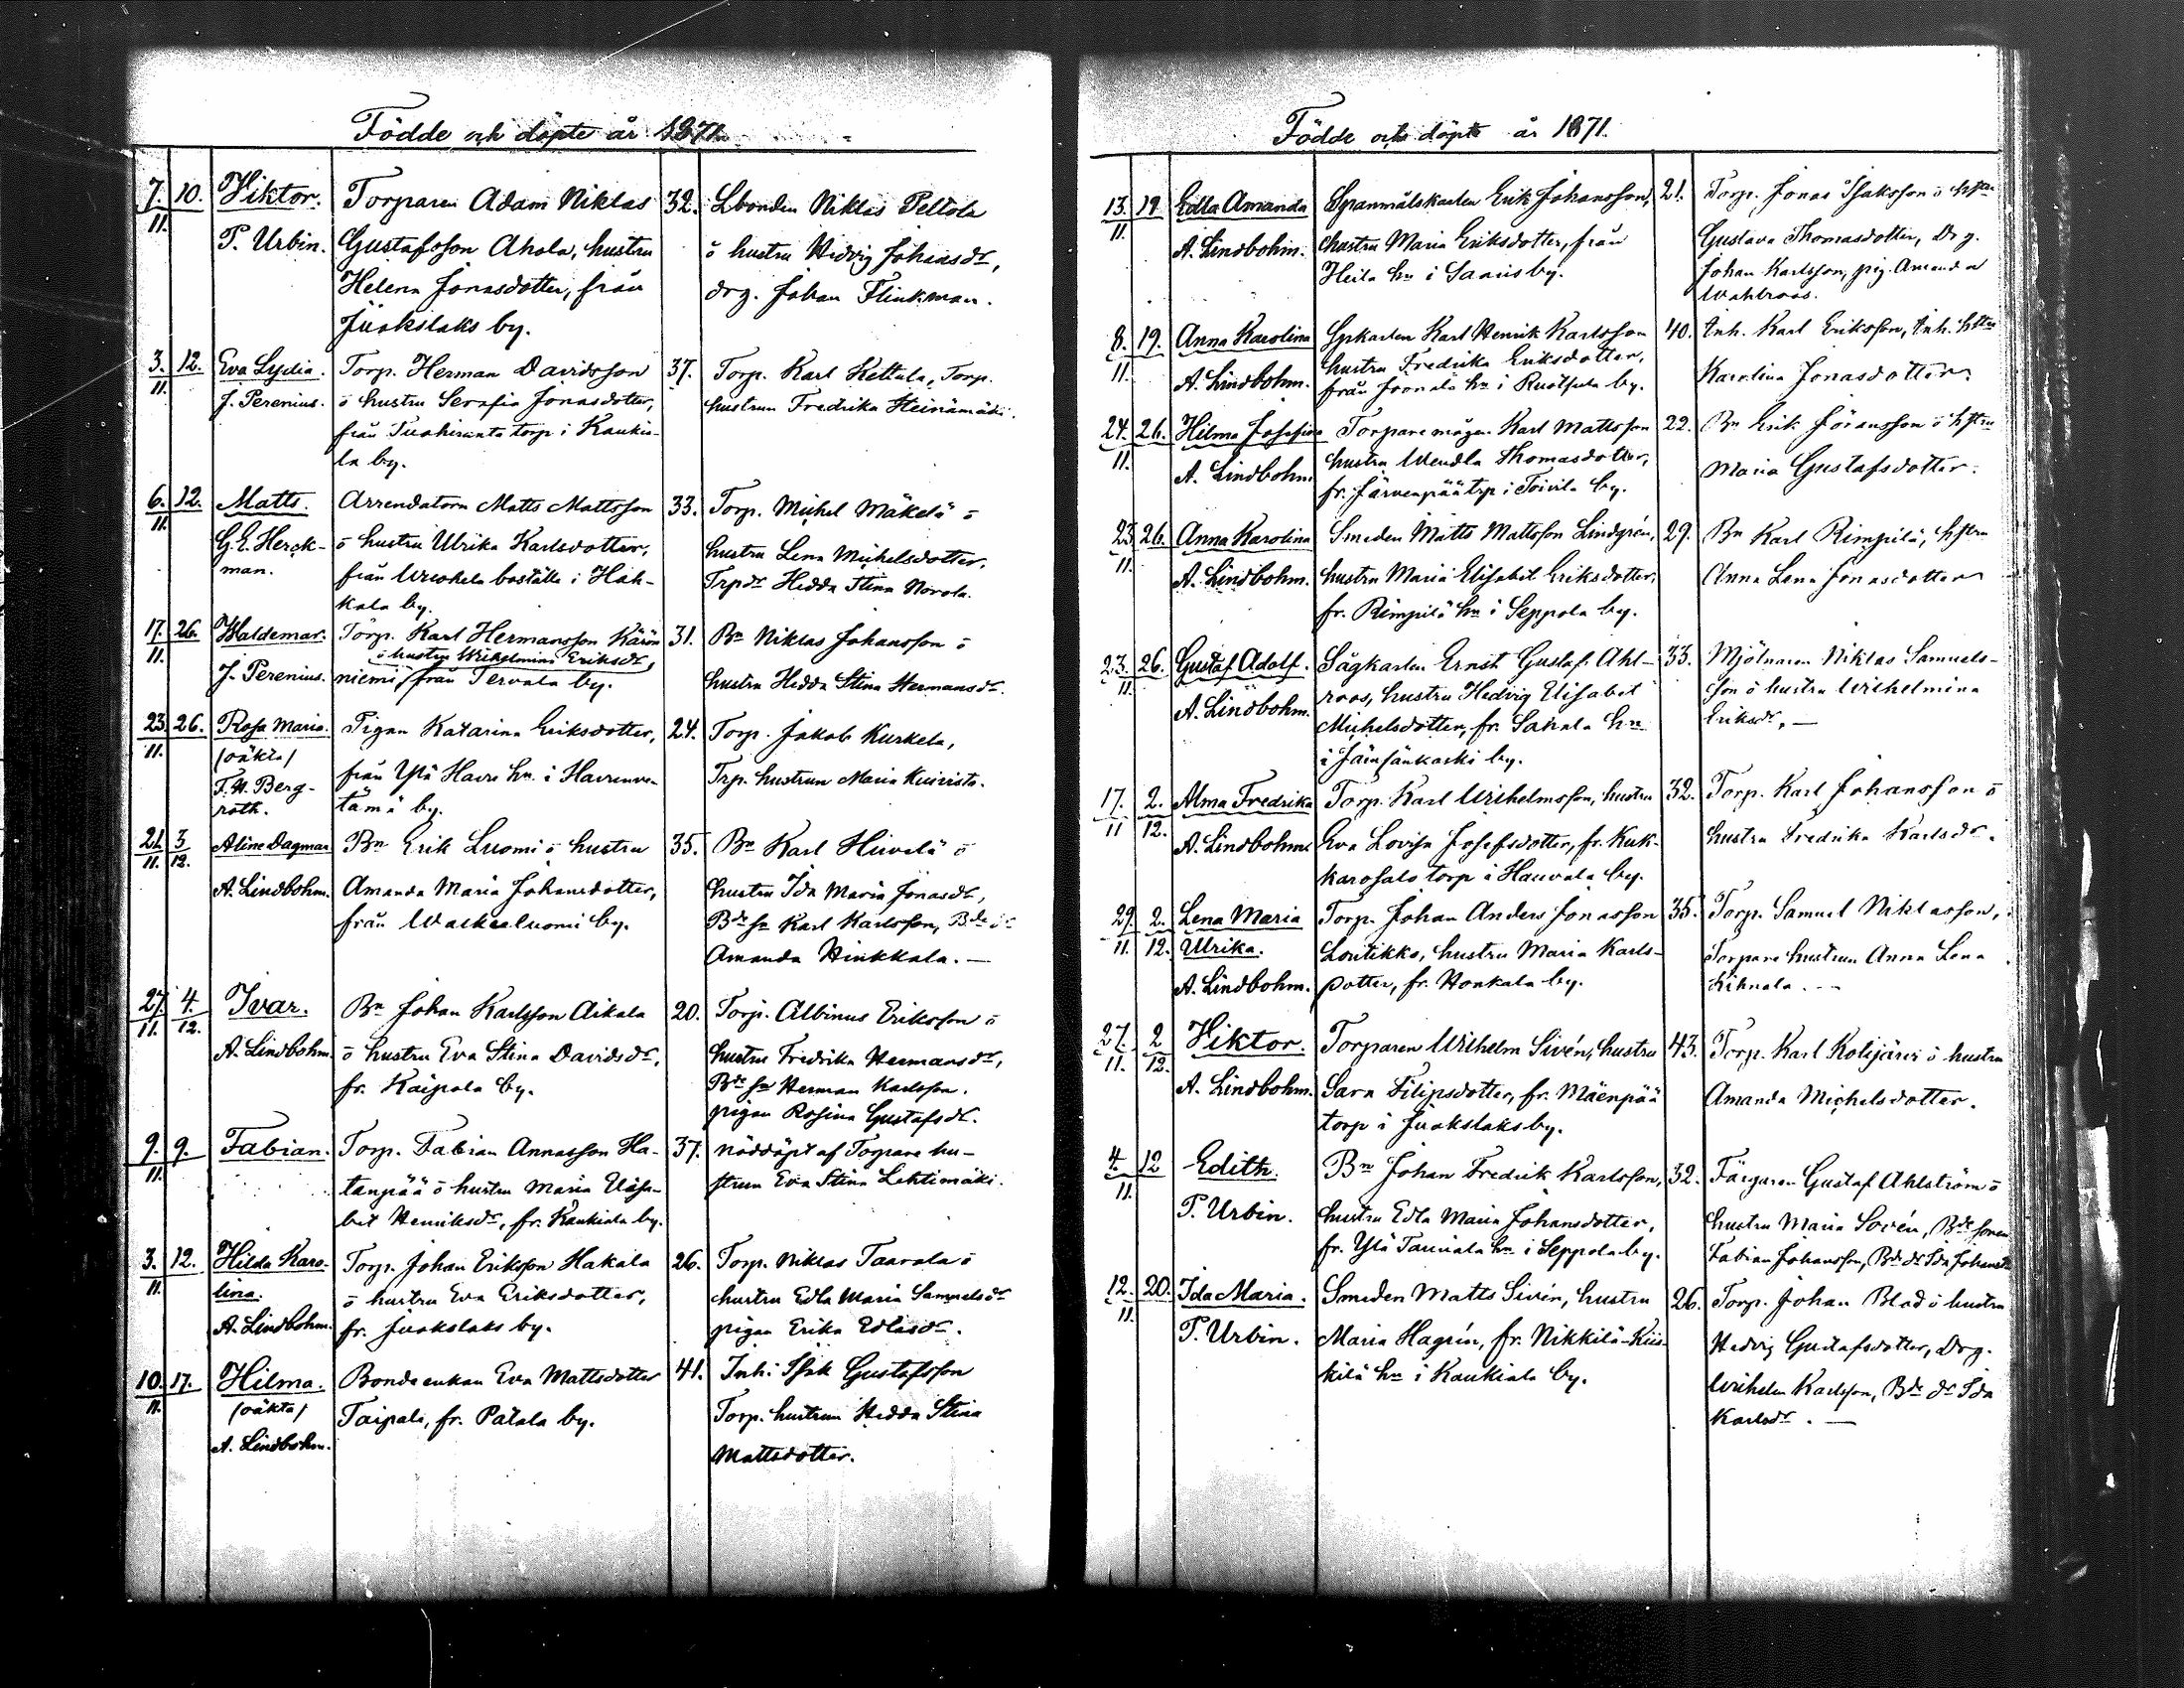 Födde och döpte år 1871.
7. 10. Viktor. Torparen Adam Niklas 32. Lbonden Niklas Peltola
11. P. Urbin. Gustafsson Ahola, hustru ō hustru Hedvig Johansdr,
Helena Jonasdotter, från drg. Johan Flinkman.
Juokslaks by.
3. 12. Eva Lydia. Torp. Herman Davidsson 37. Torp. Karl Kettala, Torp.
11. J. Perenius. ō hustru Serafia Jonasdotter, hustrun Fredrika Heinämäki.
från torp i Kaukia-
la by.
6. 12. Matts. Arrendatorn Matts Mattsson 33. Torp. Michel Mäkelä ō
11. G.E. Herck- ō hustru Ulrika Karlsdotter, hustru Lena Michelsdotter,
man. från boställe i Hah- Trpdr Hedda Stina Norola.
kala by.
17. 26. Waldemar. Torp. Karl Hermansson Kärön 31. Bn Niklas Johansson ō
ō hustru Wilhelmina Eriksdr,
11. J. Perenius. niemi, från Tervala by. hustru Hedda Stina Hermansdr.
23. 26. Rosa Maria. Pigan Katarina Eriksdotter, 24. Torp. Jakob Kurkela,
11. /oäkta/ från Ylä Havre hn. i Havrenve- Trp. hustrun Maria Kuivisto.
F.W. Berg- tämä by.
roth.
21. 3 Aline Dagmar Bn Erik Luomi ō hustru 35. Bn Karl Hiivelä ō
11. 12. A. Lindbohm. Amanda Maria Johansdotter, hustru Ida Maria Jonasdr,
från Waskealuomi by. Bde sn Karl Karlsson, Bde dr
Amanda Hinkkala. —
27. 4. Ivar. Bn Johan Karlsson Aikala 20. Torp. Albinus Eriksson ō
11. 12. A. Lindbohm. ō hustru Eva Stina Davidsdr, hustru Fredrika Hermansdr,
fr. Kaipola by. Bde sn Herman Karlsson.
pigan Rosina Gustafsdr.
9. 9. Fabian. Torp. Fabian Annasson Ha- 37. nöddöpt af Torpare hu-
11. tanpää ō hustru Maria Elisa- strun Eva Stina Lehtimäki.
bet Henriksdr, fr. Kaukiala by.
3. 12. Hilda Karo- Torp. Johan Eriksson Hakala 26. Torp. Niklas Taavala ō
11. lina. ō hustru Eva Eriksdotter, hustru Edla Maria Samuelsdr
A. Lindbohm. fr. Juokslaks by. pigan Erika Edlasdr.
10. 17. Hilma. Bondeenkan Eva Mattsdotter 41. Inh. Isak Gustafsson
11. /oäkta/ Taipale, fr. Patala by. Torp. hustrun Hedda Stina
A. Lindbohm. Mattsdotter.
Födde och döpte år 1871.
13. 19 Edla Amanda Spanmålskarlen Erik Johansson, 21. Torp. Jonas Isaksson ō hstru
11. A. Lindbohm. hustru Maria Eriksdotter, från Gustava Thomasdotter, Drg.
Heila hn i Saaris by. Johan Karlsson, pig. Amanda
Wahlroos.
8. 19. Anna Karolina Spkarlen Karl Henrik Karlsson 40. Inh. Karl Eriksson, Inh. hstru
11. A. Lindbohm. hustru Fredrika Eriksdotter, Karolina Jonasdotter.
från hn i by.
24. 26. Hilma Josefina Torpare mågen Karl Mattsson 22. Bn Erik Jöransson ō hstru
11. A. Lindbohm hustru Wendla Thomasdotter, Maria Gustafsdotter.
fr. Järvenpää trp i Toivila by.
23 26. Anna Karolina Smeden Matts Mattsson Lindgrén, 29. Bn Karl Rimpilä, hstru
11. A. Lindbohm. hustru Maria Elisabet Eriksdotter, Anna Lena Jonasdotter
fr. Rimpilä hn i Seppola by.
23. 26. Gustaf Adolf. Sågkarlen Ernst Gustaf Ahl- 33. Mjölnaren Niklas Samuels-
11. A. Lindbohm. roos, hustru Hedvig Elisabet son ō hustru Wilhelmina
Michelsdotter, fr. Sahala hn Eriksdr, —
i Jämsänkoski by.
17. 2. Alma Fredrika Torp. Karl Wilhelmsson, hustru 32. Torp. Karl Johansson ō
11 12. A. Lindbohm. Eva Lovisa Josefsdotter, fr. Kuk- hustru Fredrika Karlsdr.
karosalo torp i Hauvala by.
29. 2. Lena Maria Torp. Johan Anders Jonasson 35. Torp. Samuel Niklasson,
11. 12. Ulrika. Loutikko, hustru Maria Karls- Torpare hustrun Anna Lena
A. Lindbohm. dotter, fr. Honkala by. Kihnala. —
27. 2 Viktor. Torparen Wilhelm Sivén, hustru 43. Torp. Karl Kolijärvi ō hustru
11. 12. A. Lindbohm. Sara Filipsdotter, fr. Mäenpää Amanda Michelsdotter.
torp i Juokslaks by.
4. 12 Edith. Bn Johan Fredrik Karlsson, 32. Färgaren Gustaf Ahlström ō
11. P. Urbin. hustru Edla Maria Johansdotter, hustru Maria Sovén, Bde sonen
fr. Ylä Tauriala hn i Seppola by. Fabian Johansson, Bde dr Ida Johansdr
12. 20. Ida Maria. Smeden Matts Sivén, hustru 26. Torp. Johan Blad ō hustru
11. P. Urbin. Maria Hagrén, fr. Nikkilä-Kii- Hedvig Gustafsdotter, Drg.
kilä hn i Kaukiala by. Wilhelm Karlsson, Bde dr Ida
Karlsdr. —